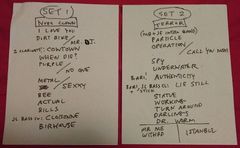 SET 1
NYPC CLOWN
I LOVE YOU
DIRT BIKE
MR DJ.
2 CLARINETS: COWTOWN
WHEN DIE?
PURPLE
NO ONE
METAL
SEXXY
BEE
ACTUAL
BILLS
CLOISONNE
BIRHOUSE
SET 2
TERROR
PARTICLE
OPERATION
CALL YOU MOM
SPY
UNDERWATER
BARI: AUTHENTICITY
LIE STILL
STATUE
WORKING
TURN AROUND
DARLINGS
DR. WORM
MR ME
WITHRD
ISTANBUL